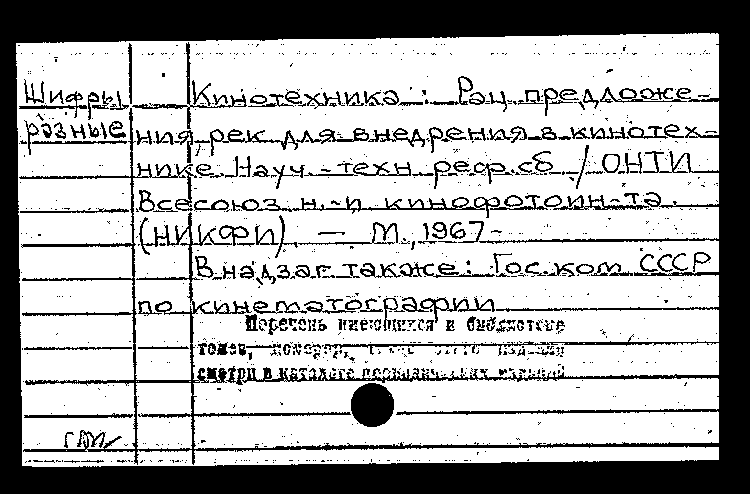 Шифры
разные
Кинотехника : Рац. предложе-
ния, рек. для внедрения в кинотех-
нике. Науч.-техн. реф. сб. / ОНТИ
Всесоюз. н.-и. кинофотоин-та.
(НИКФИ). — М., 1967-
В надзаг. также: Гос. ком. СССР
по кинематографии
Перечень имеющихся в библиотеке
томов, номеров,
смотри в каталоге периодических изданий